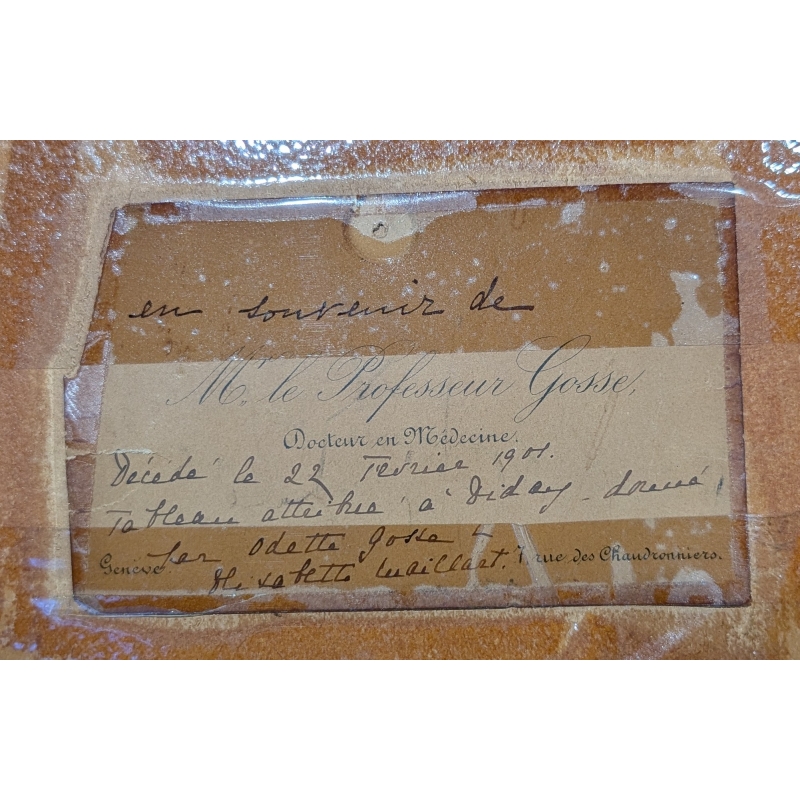 en souvenir de
Mr. le Professeur Gosse,
Docteur en Médecine.
Décédé le 22 Février 1901.
Tableau attribué à Diday - donné
par Odette Gosse
Genève 7, rue des Chaudronniers.
Elisabeth Maillart.